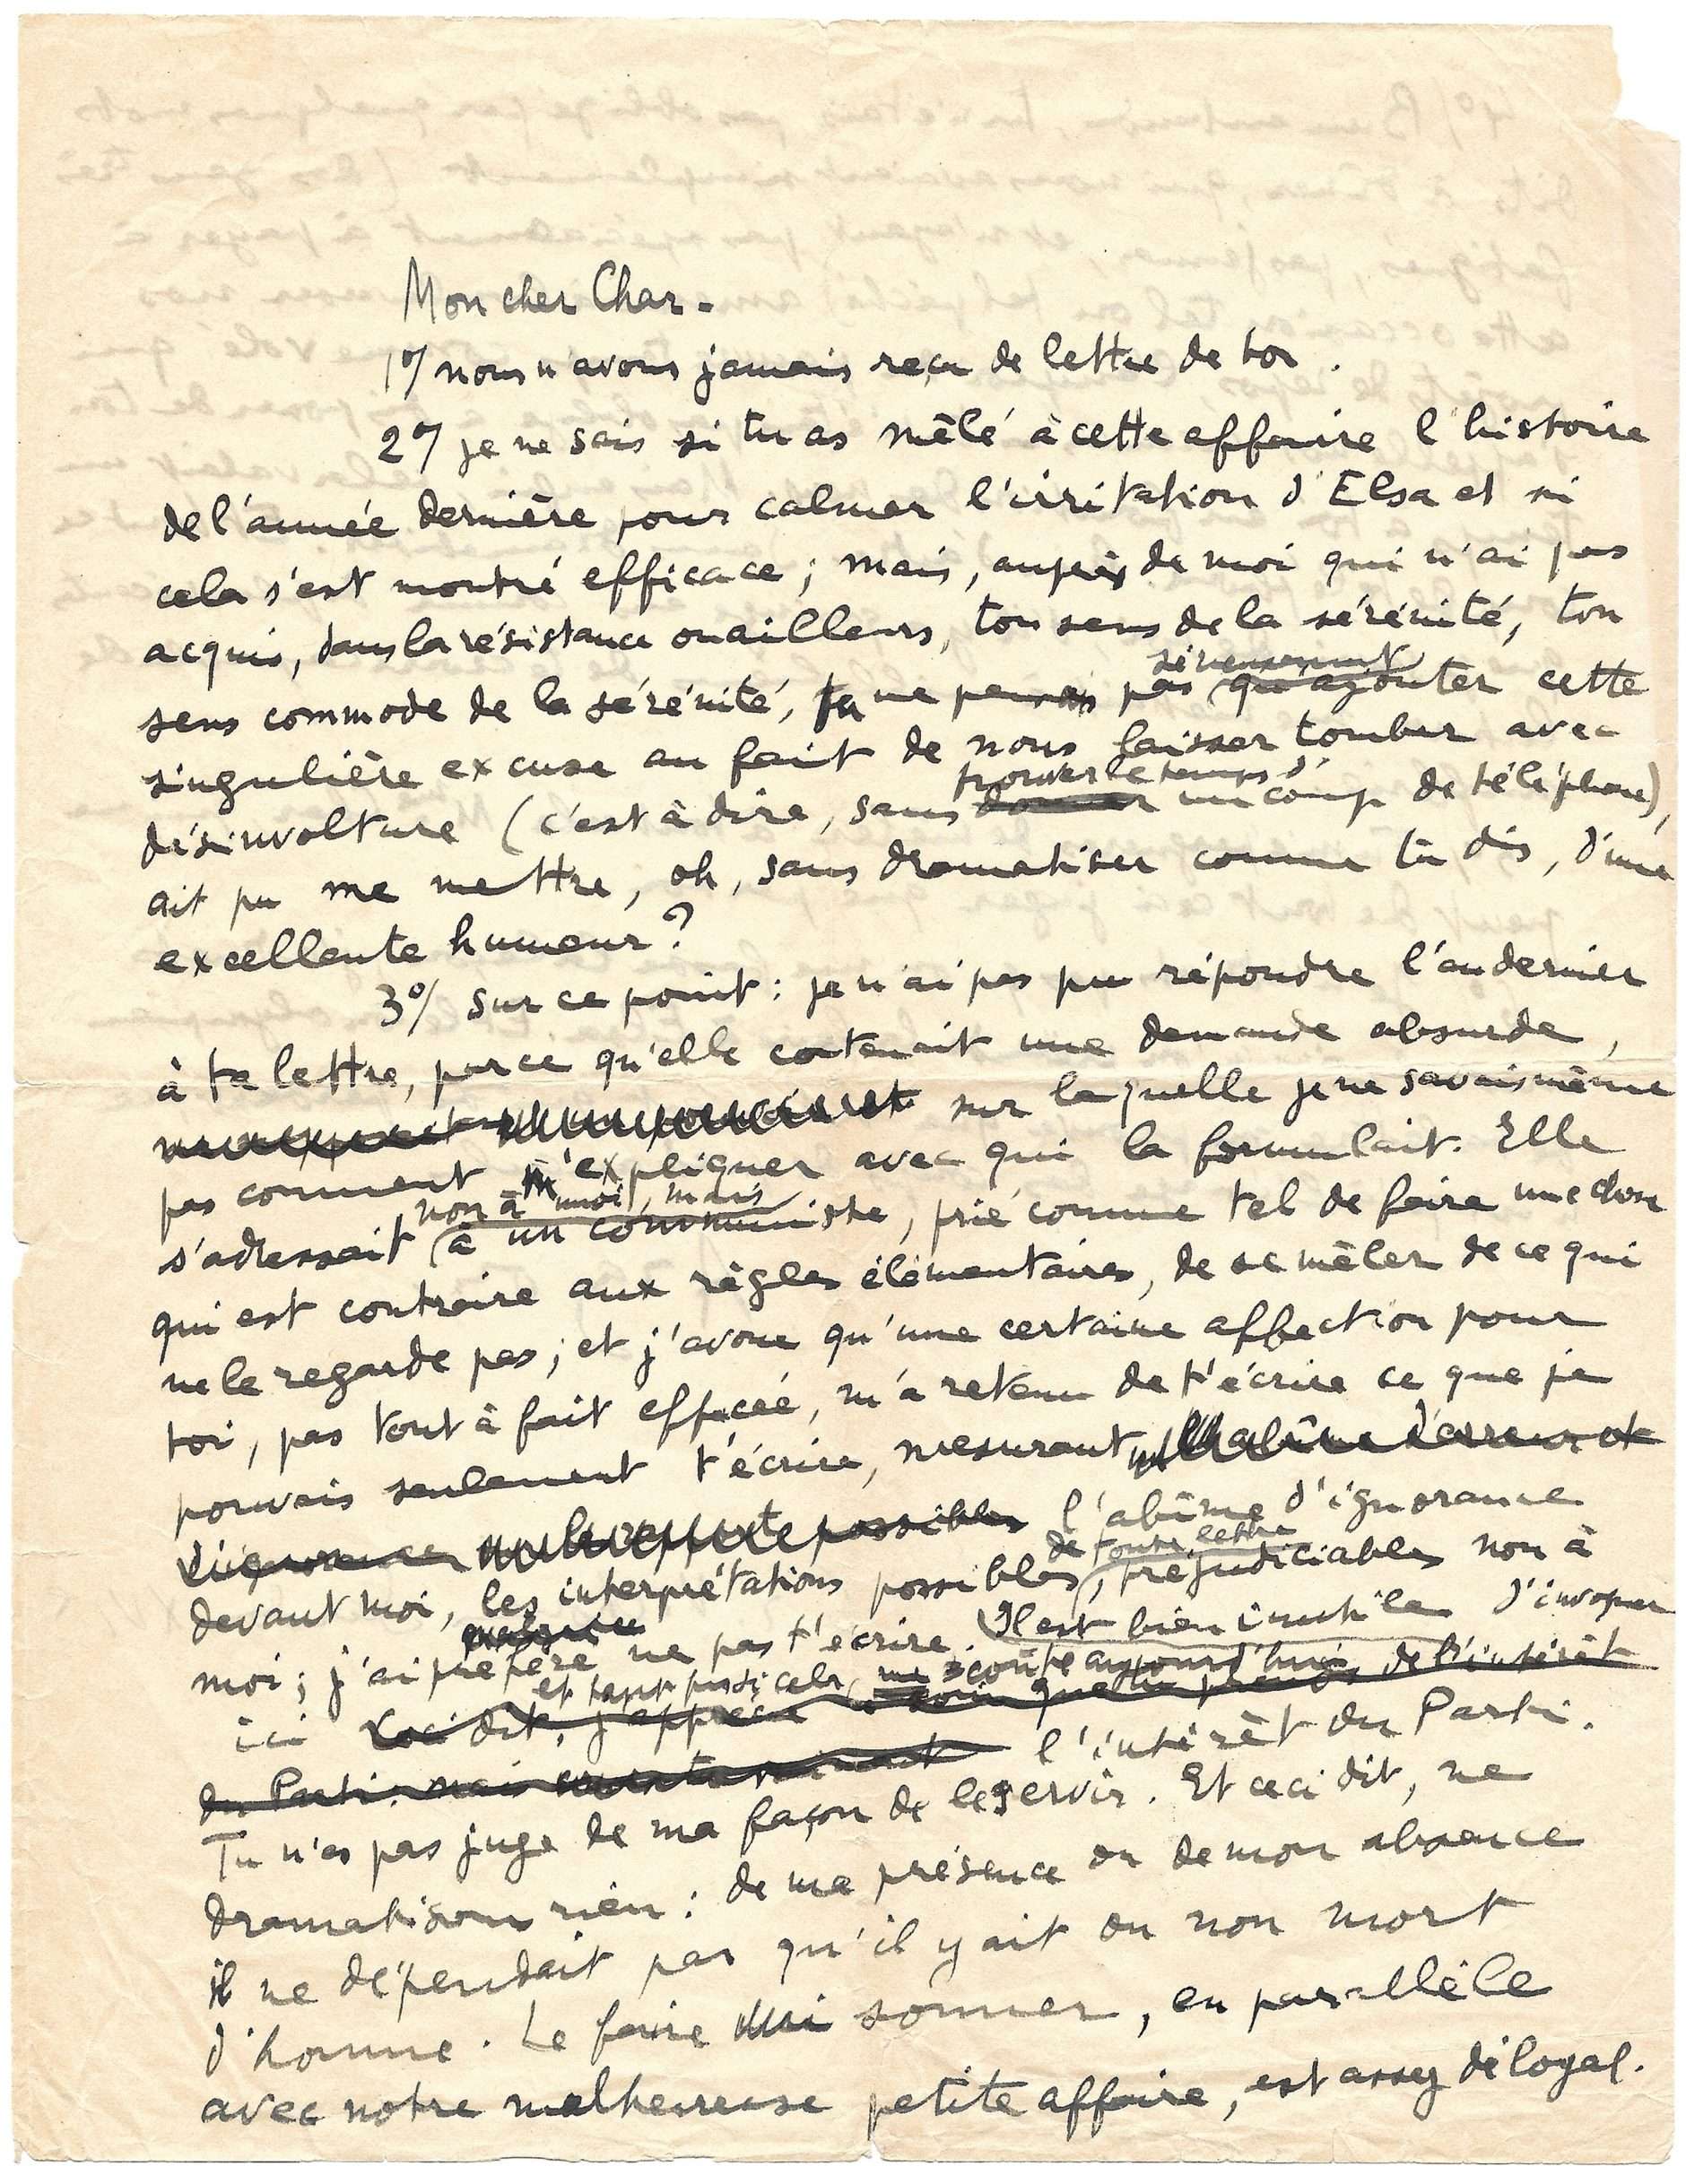 Mon cher Char.
1°/ nous n'avons jamais reçu de lettre de toi.
2°/ je ne sais si tu as mêlé à cette affaire l'histoire
de l'année dernière pour calmer l'irritation d'Elsa et si
cela s'est montré efficace ; mais, auprès de moi qui n'ai pas
acquis, dans la résistance ou ailleurs, ton sens de la sérénité, ton
sens commode de la sérénité, tu ne penses pas sérieusement qu'ajouter cette
singulière excuse au fait de nous laisser tomber avec
désinvolture (c'est à dire, sans trouver le temps d'un coup de téléphone),
ait pu me mettre, oh, sans dramatiser comme tu dis, d'une
excellente humeur ?
3°/ Sur ce point : je n'ai pas pu répondre l'an dernier
à ta lettre, parce qu'elle contenait une demande absurde,
sur laquelle je ne savais même
pas comment m'expliquer avec qui la formulait. Elle
s'adressait non à moi, mais à un communiste, prié comme tel de faire une chose
qui est contraire aux règles élémentaires, de se mêler de ce qui
ne le regarde pas ; et j'avoue qu'une certaine affection pour
toi, pas tout à fait effacée, m'a retenu de t'écrire ce que je
pouvais seulement t'écrire, mesurant l'abîme d'erreur et
d'ignorance possibles l'abîme d'ignorance
devant moi, les interprétations possibles, de toute lettre, préjudiciables non à
moi ; j'ai préféré ne pas t'écrire. Il est bien inutile d'invoquer
ici Ceci dit, j'apprécie que tu prends de l'intérêt
du Parti. mais l'intérêt du Parti.
Tu n'es pas juge de ma façon de le servir. Et ceci dit, ne
dramatisons rien : de ma présence ou de mon absence
il ne dépendait pas qu'il y ait ou non mort
d'homme. Le faire sonner, en parallèle
avec notre malheureuse petite affaire, est assez déloyal.